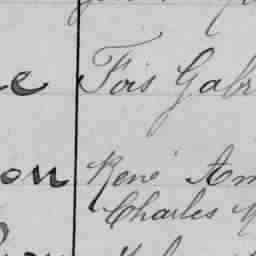 e Fois Gabr
on René Am
Charles M